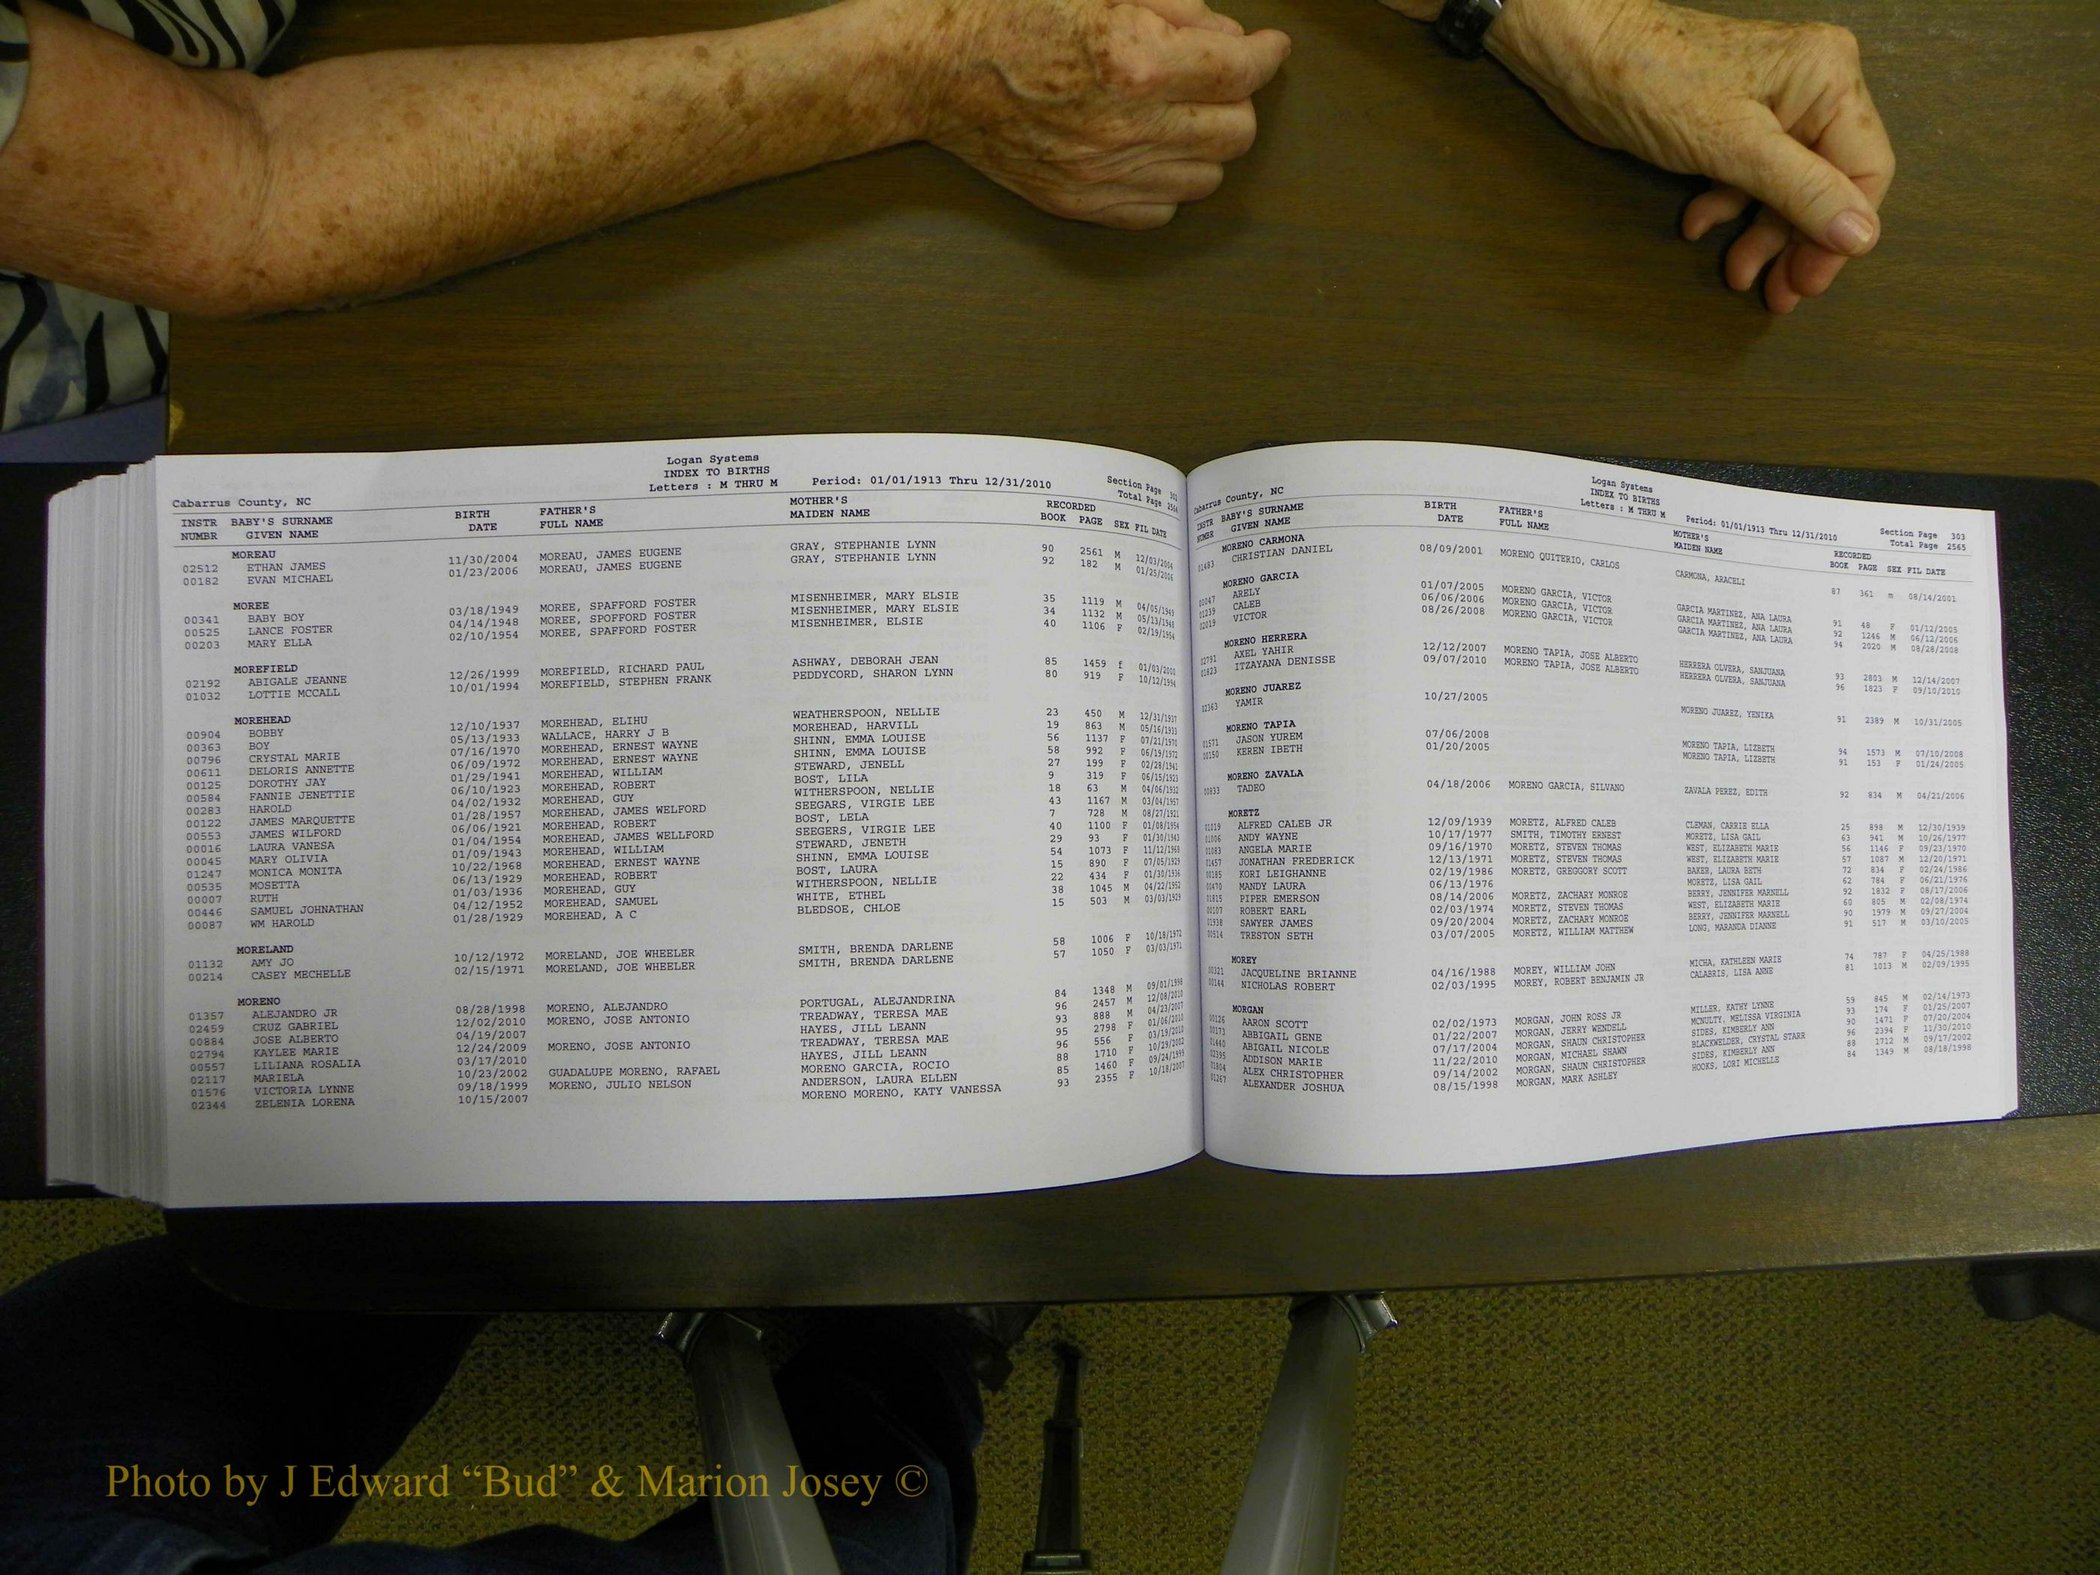 Logan Systems
INDEX TO BIRTHS
Letters : M THRU M Period: 01/01/1913 Thru 12/31/2010 Section Page 302
Cabarrus County, NC Total Page 2564
INSTR BABY'S SURNAME BIRTH FATHER'S MOTHER'S RECORDED
NUMBR GIVEN NAME DATE FULL NAME MAIDEN NAME BOOK PAGE SEX FIL DATE
MOREAU
02512 ETHAN JAMES 11/30/2004 MOREAU, JAMES EUGENE GRAY, STEPHANIE LYNN 90 2561 M 12/03/2004
00182 EVAN MICHAEL 01/23/2006 MOREAU, JAMES EUGENE GRAY, STEPHANIE LYNN 92 182 M 01/25/2006
MOREE
00341 BABY BOY 03/18/1949 MOREE, SPAFFORD FOSTER MISENHEIMER, MARY ELSIE 35 1119 M 04/05/1949
00525 LANCE FOSTER 04/14/1948 MOREE, SPOFFORD FOSTER MISENHEIMER, MARY ELSIE 34 1132 M 05/13/1948
00203 MARY ELLA 02/10/1954 MOREE, SPAFFORD FOSTER MISENHEIMER, ELSIE 40 1106 F 02/19/1954
MOREFIELD
02192 ABIGALE JEANNE 12/26/1999 MOREFIELD, RICHARD PAUL ASHWAY, DEBORAH JEAN 85 1459 f 01/03/2000
01032 LOTTIE MCCALL 10/01/1994 MOREFIELD, STEPHEN FRANK PEDDYCORD, SHARON LYNN 80 919 F 10/12/1994
MOREHEAD
00904 BOBBY 12/10/1937 MOREHEAD, ELIHU WEATHERSPOON, NELLIE 23 450 M 12/31/1937
00363 BOY 05/13/1933 WALLACE, HARRY J B MOREHEAD, HARVILL 19 863 M 05/16/1933
00796 CRYSTAL MARIE 07/16/1970 MOREHEAD, ERNEST WAYNE SHINN, EMMA LOUISE 56 1137 F 07/21/1970
00611 DELORIS ANNETTE 06/09/1972 MOREHEAD, ERNEST WAYNE SHINN, EMMA LOUISE 58 992 F 06/19/1972
00125 DOROTHY JAY 01/29/1941 MOREHEAD, WILLIAM STEWARD, JENELL 27 199 F 02/28/1941
00584 FANNIE JENETTIE 06/10/1923 MOREHEAD, ROBERT BOST, LILA 9 319 F 06/15/1923
00283 HAROLD 04/02/1932 MOREHEAD, GUY WITHERSPOON, NELLIE 18 63 M 04/06/1932
00122 JAMES MARQUETTE 01/28/1957 MOREHEAD, JAMES WELFORD SEEGARS, VIRGIE LEE 43 1167 M 03/04/1957
00553 JAMES WILFORD 06/06/1921 MOREHEAD, ROBERT BOST, LELA 7 728 M 08/27/1921
00016 LAURA VANESA 01/04/1954 MOREHEAD, JAMES WELLFORD SEEGERS, VIRGIE LEE 40 1100 F 01/08/1954
00045 MARY OLIVIA 01/09/1943 MOREHEAD, WILLIAM STEWARD, JENETH 29 93 F 01/30/1943
01247 MONICA MONITA 10/22/1968 MOREHEAD, ERNEST WAYNE SHINN, EMMA LOUISE 54 1073 F 11/12/1968
00535 MOSETTA 06/13/1929 MOREHEAD, ROBERT BOST, LAURA 15 890 F 07/05/1929
00007 RUTH 01/03/1936 MOREHEAD, GUY WITHERSPOON, NELLIE 22 434 F 01/30/1936
00446 SAMUEL JOHNATHAN 04/12/1952 MOREHEAD, SAMUEL WHITE, ETHEL 38 1045 M 04/22/1952
00087 WM HAROLD 01/28/1929 MOREHEAD, A C BLEDSOE, CHLOE 15 503 M 03/03/1929
MORELAND
01132 AMY JO 10/12/1972 MORELAND, JOE WHEELER SMITH, BRENDA DARLENE 58 1006 F 10/18/1972
00214 CASEY MECHELLE 02/15/1971 MORELAND, JOE WHEELER SMITH, BRENDA DARLENE 57 1050 F 03/03/1971
MORENO
01357 ALEJANDRO JR 08/28/1998 MORENO, ALEJANDRO PORTUGAL, ALEJANDRINA 84 1348 M 09/01/1998
02459 CRUZ GABRIEL 12/02/2010 MORENO, JOSE ANTONIO TREADWAY, TERESA MAE 96 2457 M 12/08/2010
00884 JOSE ALBERTO 04/19/2007 HAYES, JILL LEANN 93 888 M 04/23/2007
02794 KAYLEE MARIE 12/24/2009 MORENO, JOSE ANTONIO TREADWAY, TERESA MAE 95 2798 F 01/06/2010
00557 LILIANA ROSALIA 03/17/2010 HAYES, JILL LEANN 96 556 F 03/19/2010
02117 MARIELA 10/23/2002 GUADALUPE MORENO, RAFAEL MORENO GARCIA, ROCIO 88 1710 F 10/29/2002
01576 VICTORIA LYNNE 09/18/1999 MORENO, JULIO NELSON ANDERSON, LAURA ELLEN 85 1460 F 09/24/1999
02344 ZELENIA LORENA 10/15/2007 MORENO MORENO, KATY VANESSA 93 2355 F 10/18/2007
Logan Systems
INDEX TO BIRTHS
Letters : M THRU M Period: 01/01/1913 Thru 12/31/2010 Section Page 303
Cabarrus County, NC Total Page 2565
INSTR BABY'S SURNAME BIRTH FATHER'S MOTHER'S RECORDED
NUMBR GIVEN NAME DATE FULL NAME MAIDEN NAME BOOK PAGE SEX FIL DATE
MORENO CARMONA
01483 CHRISTIAN DANIEL 08/09/2001 MORENO QUITERIO, CARLOS CARMONA, ARACELI 87 361 m 08/14/2001
MORENO GARCIA
00047 ARELY 01/07/2005 MORENO GARCIA, VICTOR GARCIA MARTINEZ, ANA LAURA 91 48 F 01/12/2005
01239 CALEB 06/06/2006 MORENO GARCIA, VICTOR GARCIA MARTINEZ, ANA LAURA 92 1246 M 06/12/2006
02019 VICTOR 08/26/2008 MORENO GARCIA, VICTOR GARCIA MARTINEZ, ANA LAURA 94 2020 M 08/28/2008
MORENO HERRERA
02791 AXEL YAHIR 12/12/2007 MORENO TAPIA, JOSE ALBERTO HERRERA OLVERA, SANJUANA 93 2803 M 12/14/2007
01823 ITZAYANA DENISSE 09/07/2010 MORENO TAPIA, JOSE ALBERTO HERRERA OLVERA, SANJUANA 96 1823 F 09/10/2010
MORENO JUAREZ
02363 YAMIR 10/27/2005 MORENO JUAREZ, YENIKA 91 2389 M 10/31/2005
MORENO TAPIA
01571 JASON YUREM 07/06/2008 MORENO TAPIA, LIZBETH 94 1573 M 07/10/2008
00150 KEREN IBETH 01/20/2005 MORENO TAPIA, LIZBETH 91 153 F 01/24/2005
MORENO ZAVALA
00833 TADEO 04/18/2006 MORENO GARCIA, SILVANO ZAVALA PEREZ, EDITH 92 834 M 04/21/2006
MORETZ
01019 ALFRED CALEB JR 12/09/1939 MORETZ, ALFRED CALEB CLEMAN, CARRIE ELLA 25 898 M 12/30/1939
01006 ANDY WAYNE 10/17/1977 SMITH, TIMOTHY ERNEST MORETZ, LISA GAIL 63 941 M 10/26/1977
01083 ANGELA MARIE 09/16/1970 MORETZ, STEVEN THOMAS WEST, ELIZABETH MARIE 56 1146 F 09/23/1970
01457 JONATHAN FREDERICK 12/13/1971 MORETZ, STEVEN THOMAS WEST, ELIZABETH MARIE 57 1087 M 12/20/1971
00185 KORI LEIGHANNE 02/19/1986 MORETZ, GREGGORY SCOTT BAKER, LAURA BETH 72 834 F 02/24/1986
01470 MANDY LAURA 06/13/1976 MORETZ, LISA GAIL 62 784 F 06/21/1976
01815 PIPER EMERSON 08/14/2006 MORETZ, ZACHARY MONROE BERRY, JENNIFER MARNELL 92 1832 F 08/17/2006
00107 ROBERT EARL 02/03/1974 MORETZ, STEVEN THOMAS WEST, ELIZABETH MARIE 60 805 M 02/08/1974
01938 SAWYER JAMES 09/20/2004 MORETZ, ZACHARY MONROE BERRY, JENNIFER MARNELL 90 1979 M 09/27/2004
00514 TRESTON SETH 03/07/2005 MORETZ, WILLIAM MATTHEW LONG, MARANDA DIANNE 91 517 M 03/10/2005
MOREY
00321 JACQUELINE BRIANNE 04/16/1988 MOREY, WILLIAM JOHN MICHA, KATHLEEN MARIE 74 787 F 04/25/1988
00144 NICHOLAS ROBERT 02/03/1995 MOREY, ROBERT BENJAMIN JR CALABRIS, LISA ANNE 81 1013 M 02/09/1995
MORGAN
00126 AARON SCOTT 02/02/1973 MORGAN, JOHN ROSS JR MILLER, KATHY LYNNE 59 845 M 02/14/1973
00173 ABBIGAIL GENE 01/22/2007 MORGAN, JERRY WENDELL MCNULTY, MELISSA VIRGINIA 93 174 F 01/25/2007
01440 ABIGAIL NICOLE 07/17/2004 MORGAN, SHAUN CHRISTOPHER SIDES, KIMBERLY ANN 90 1471 F 07/20/2004
02395 ADDISON MARIE 11/22/2010 MORGAN, MICHAEL SHAWN BLACKWELDER, CRYSTAL STARR 96 2394 F 11/30/2010
01804 ALEX CHRISTOPHER 09/14/2002 MORGAN, SHAUN CHRISTOPHER SIDES, KIMBERLY ANN 88 1712 M 09/17/2002
01267 ALEXANDER JOSHUA 08/15/1998 MORGAN, MARK ASHLEY HOOKS, LORI MICHELLE 84 1349 M 08/18/1998
Photo by J Edward “Bud” & Marion Josey ©